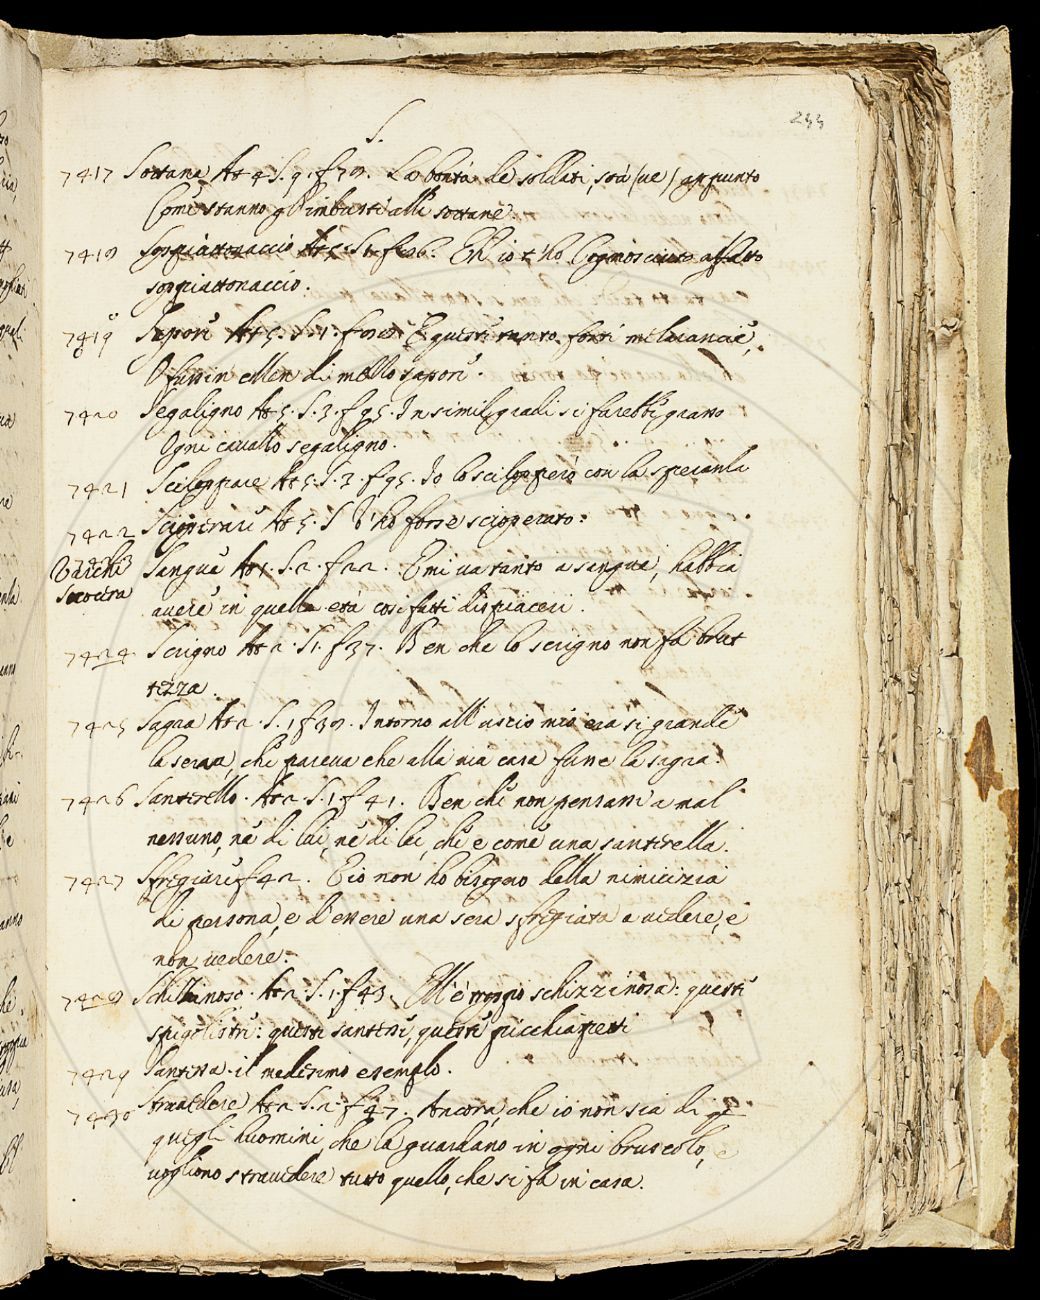 S.
244
7417 Sottane At 4. S. 9. f 78. La bontà de soldati, sta (ve) appunto
Come stanno gl'imbusti alle sottane.
7418 Soppiattonaccio At 5. S 1. f 86. Eh io t'ho Cognosciuto affatto
soppiattonaccio.
7419 Sapore At 5. S. 1. f E questi tanto forti melarancie,
O fussin ellen di mello sapore.
7420 Segaligno At 5. S. 3. f 95. In simil gradi si farebbe grasso
Ogni cavallo segaligno.
7421 Scileppiare At 5. S. 3. f 95. Io lo scilepperò con la speranza
7422 Scioperare At 5. S I' ho forse scioperato.
7423
Varchi
Suocera
Sangue At 1. S. 2. f 22. E mi va tanto a sangue, habbia
avere in quella età così fatti dispiaceri.
7424 Scrigno At 2. S 1. f 37. Ben che lo scrigno non fa brut
tezza.
7425 Sagra At 2. S. 1 f 38. Intorno all'uscio mio era sì grande
la serra, che pareva che alla mia casa fusse la sagra.
7426 Santerello. At 2. S. 1. f 41. Ben che non pensassi a mal
nessuno, né di lui, né di lei, che è come una santerella.
7427 Sfregiare f 42. E io non ho bisogno della nimicizia
di persona, e d'essere una sera sfregiata a vedere, e
non vedere.
7428 Schizzinoso. At 2. S. 1. f 43. Ell'è troppo schizzinosa: queste
spigolistre: queste santesse, queste picchiapetti
7429 Santessa. il medesimo esemplo.
7430 Stravedere At 2. S. 2. f 47. Ancora, che io non sia di
quegli huomini, che la guardano in ogni bruscolo, e
vogliono stravedere tutto quello, che si fa in casa.